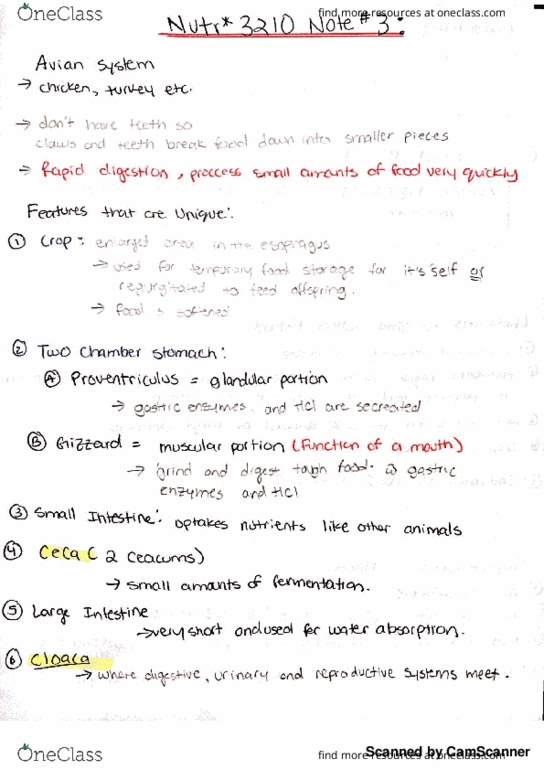 OneClass
find more resources at oneclass.com
Nutr* 3210 Note # 3:
Avian System
→ chicken, turkey etc.
→ don't have teeth so
claws and teeth break food down into smaller pieces
→ Rapid digestion, proccess small amants of food very quickly
Features that are Unique:
① Crop: enlarged area in the esophagus
→ used for temporary food storage for it's self or
regurgitated to feed offspring.
→ food is softened
② Two Chamber stomach:
Ⓐ Proventriculus = glandular portion
→ gastric enzymes and HCl are secreated
Ⓑ Gizzard = muscular portion (function of a mouth)
→ grind and digest tough food. gastric
enzymes and HCl
③ Small Intestine: optakes nutrients like other animals
④ Ceca ( 2 ceacums)
→ small amants of fermentation.
⑤ Large Intestine
→ very short and used for water absorption.
⑥ Cloaca
→ where digestive, urinary and reproductive systems meet.
OneClass
find more resources at oneclass.com
Scanned by CamScanner